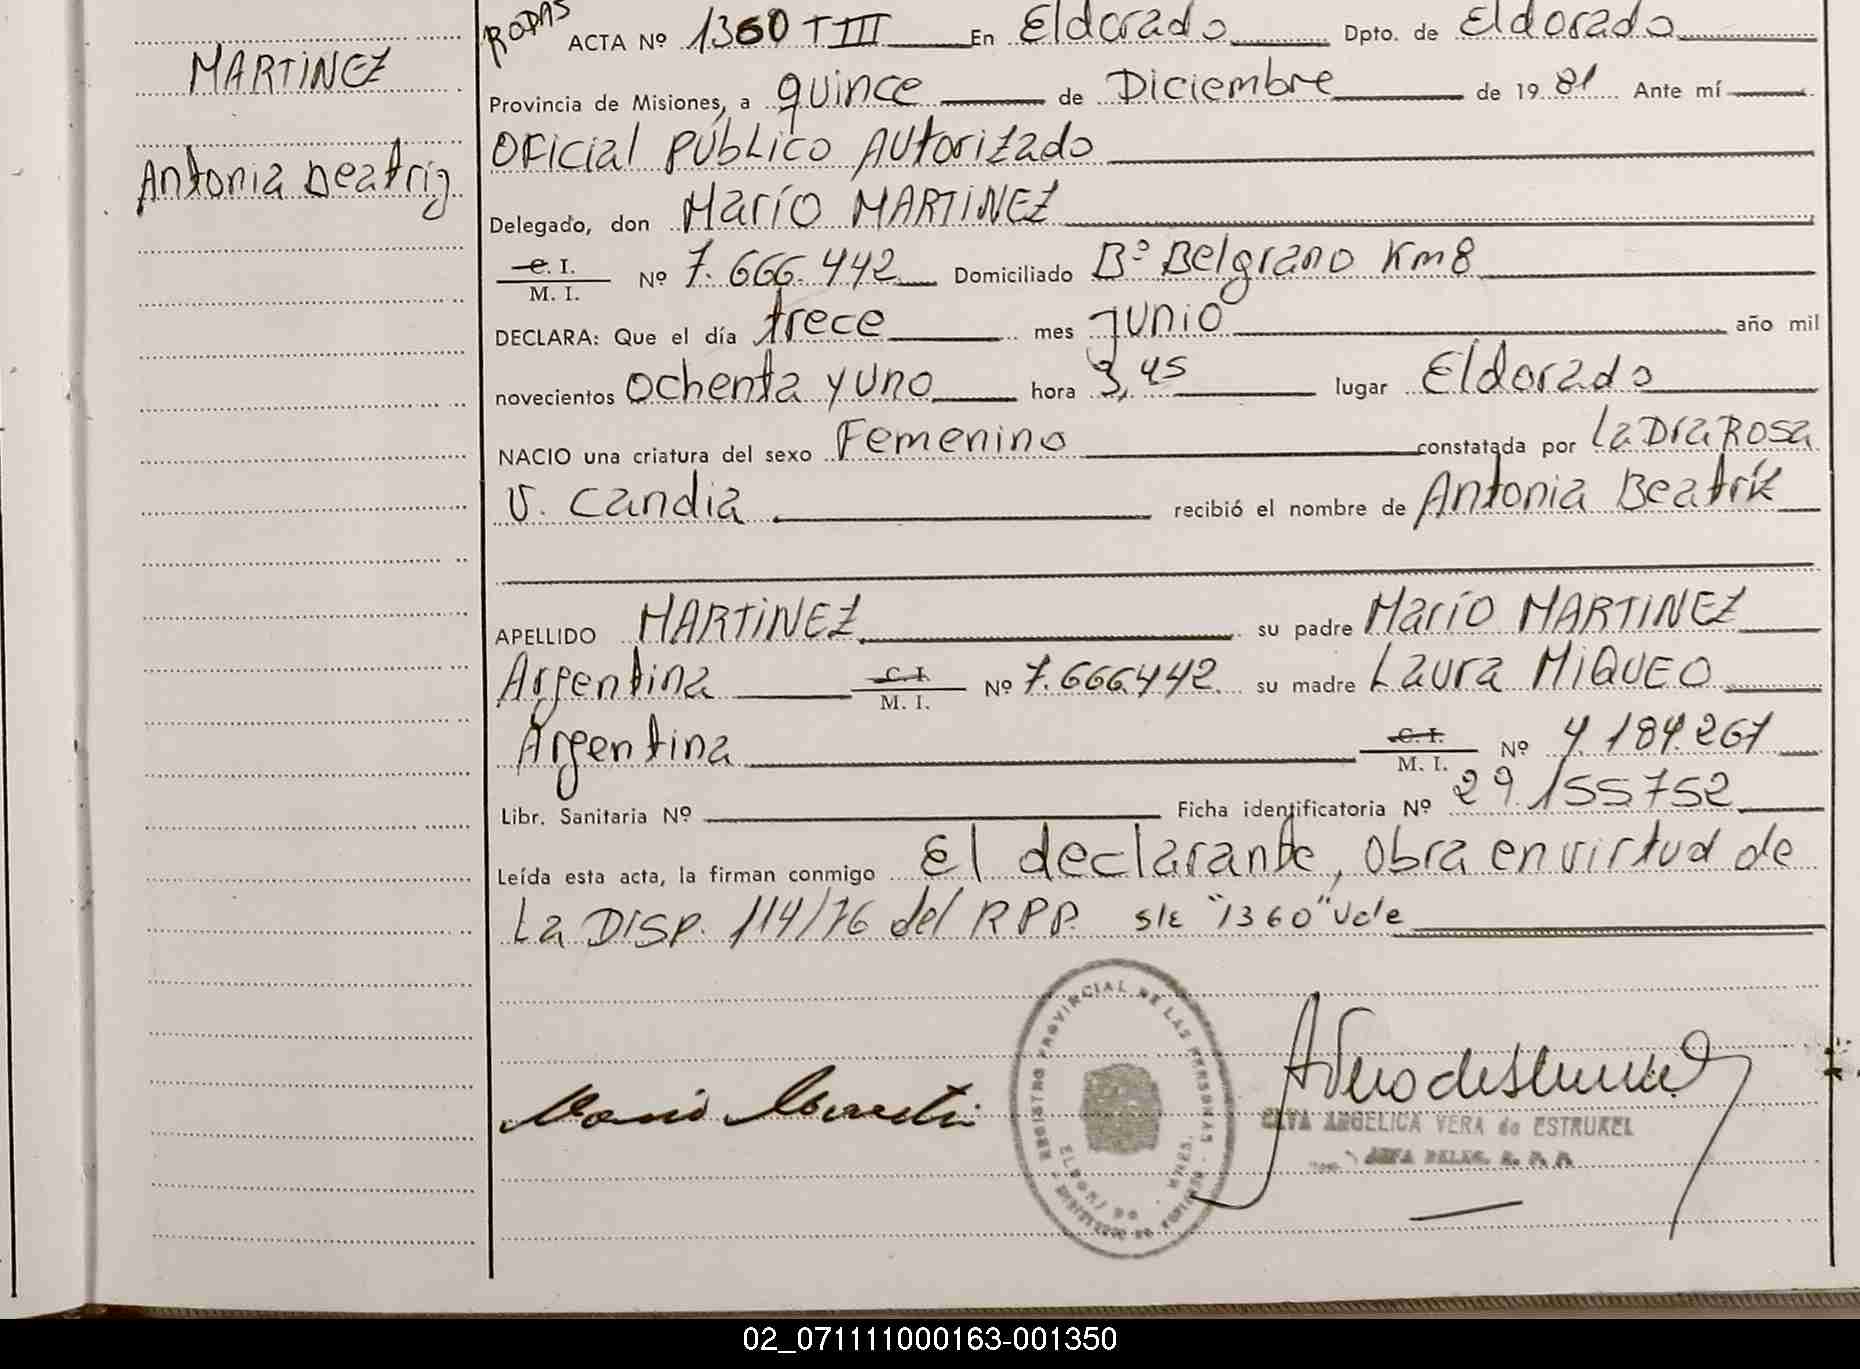 MARTINEZ
Antonia Beatriz
RODAS
ACTA Nº 1360 T III En Eldorado Dpto. de Eldorado
Provincia de Misiones, a quince de Diciembre de 1981 Ante mí
Oficial Público Autorizado
Delegado, don Mario MARTINEZ
C. I.
M. I. Nº 7.666.442 Domiciliado Bº Belgrano Km 8
DECLARA: Que el día trece mes junio año mil
novecientos ochenta y uno hora 3,45 lugar Eldorado
NACIO una criatura del sexo Femenino constatada por La Dra Rosa
V. Candia recibió el nombre de Antonia Beatriz
APELLIDO MARTINEZ su padre Mario MARTINEZ
Argentina C. I.
M. I. Nº 7.666.442 su madre Laura MIQUEO
Argentina C. I.
M. I. Nº 4.184.267
Libr. Sanitaria Nº Ficha identificatoria Nº 29.155752
Leída esta acta, la firman conmigo El declarante, obra en virtud de
La DISP. 114/76 del RPP. s/e "1360" Vale
REGISTRO PROVINCIAL DE LAS PERSONAS
ELDORADO - MNES.
ELVA ANGELICA VERA de ESTRUKEL
JEFA DELEG. R. P. P.
02_071111000163-001350